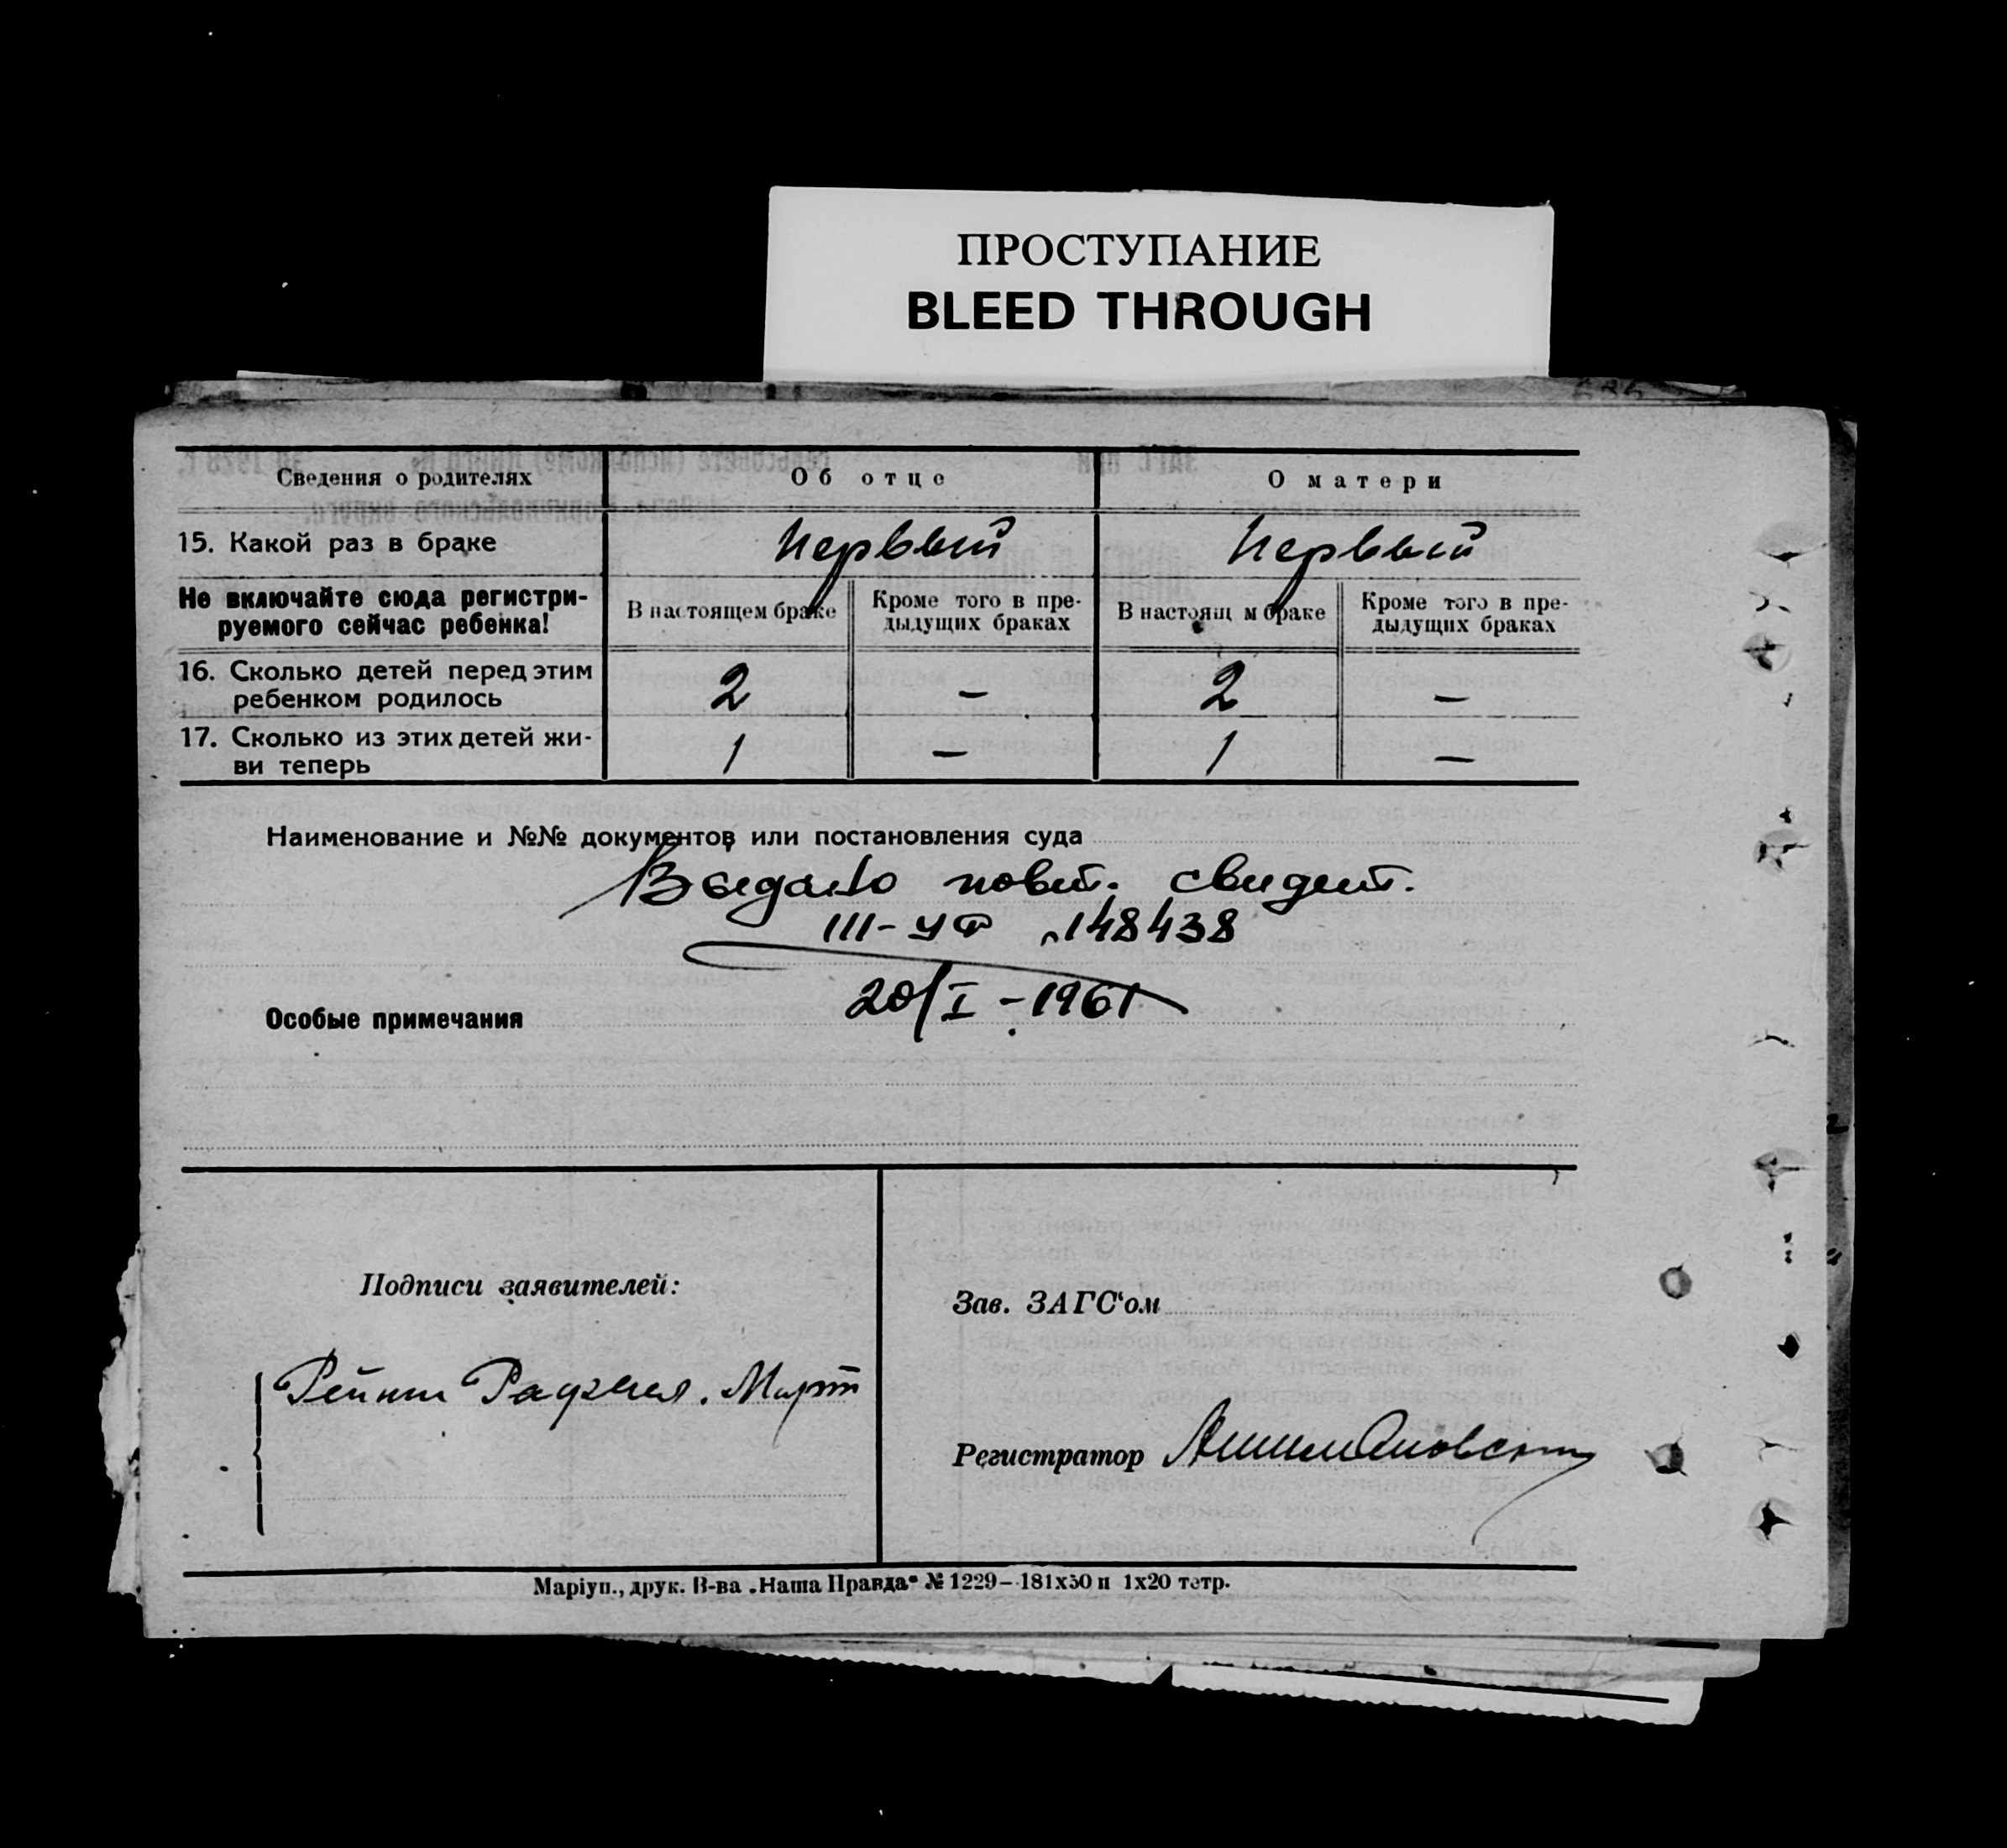 ПРОСТУПАНИЕ
BLEED THROUGH
Сведения о родителях Об отце О матери
15. Какой раз в браке первый первый
Не включайте сюда регистри-
руемого сейчас ребенка!
В настоящем браке Кроме того в пре-
дыдущих браках В настоящ м браке Кроме того в пре-
дыдущих браках
16. Сколько детей перед этим
ребенком родилось 2 – 2 –
17. Сколько из этих детей жи-
ви теперь 1 – 1 –
Наименование и №№ документов или постановления суда
Выдано повт. свидет.
III-УФ 148438
20/I-1961
Особые примечания
Подписи заявителей:
Зав. ЗАГС'ом
Регистратор
Маріуп., друк. В-ва „Наша Правда" № 1229–181х50 п 1х20 тетр.